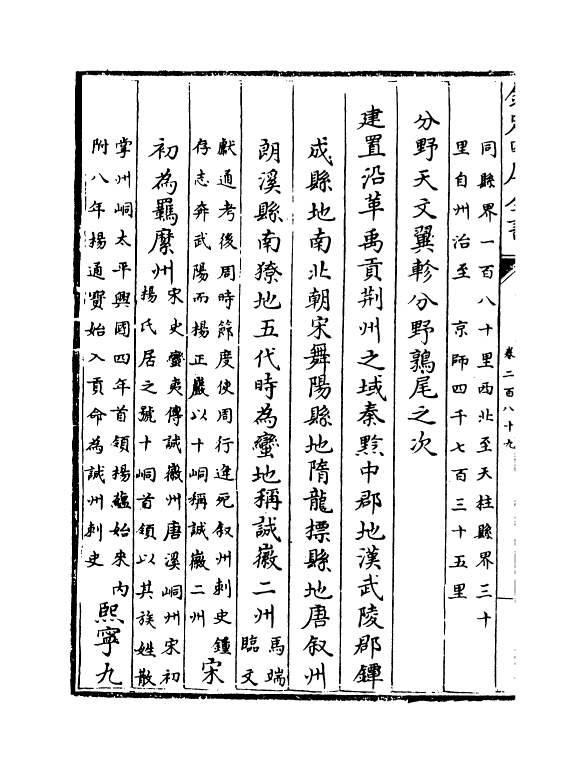 欽定四庫全書
卷二百八十九
同縣界一百八十里西北至天柱縣界三十
里自州治至　京師四千七百三十五里
分野天文翼軫分野鶉尾之次
建置沿革禹貢荆州之域秦黔中郡地漢武陵郡鐔
成縣地南北朝宋舞陽縣地隋龍摽縣地唐叙州
朗溪縣南獠地五代時為蠻地稱誠徽二州馬端
臨文
獻通考後周時節度使周行逢死叙州刺史鍾
存志奔武陽而楊正巖以十峒稱誠徽二州
宋
初為羈縻州宋史蠻夷傳誠徽州唐溪峒州宋初
揚氏居之號十峒首領以其族姓散
掌州峒太平興國四年首領揚蘊始來内
附八年揚通寳始入貢命為誠州刺史
熙寧九